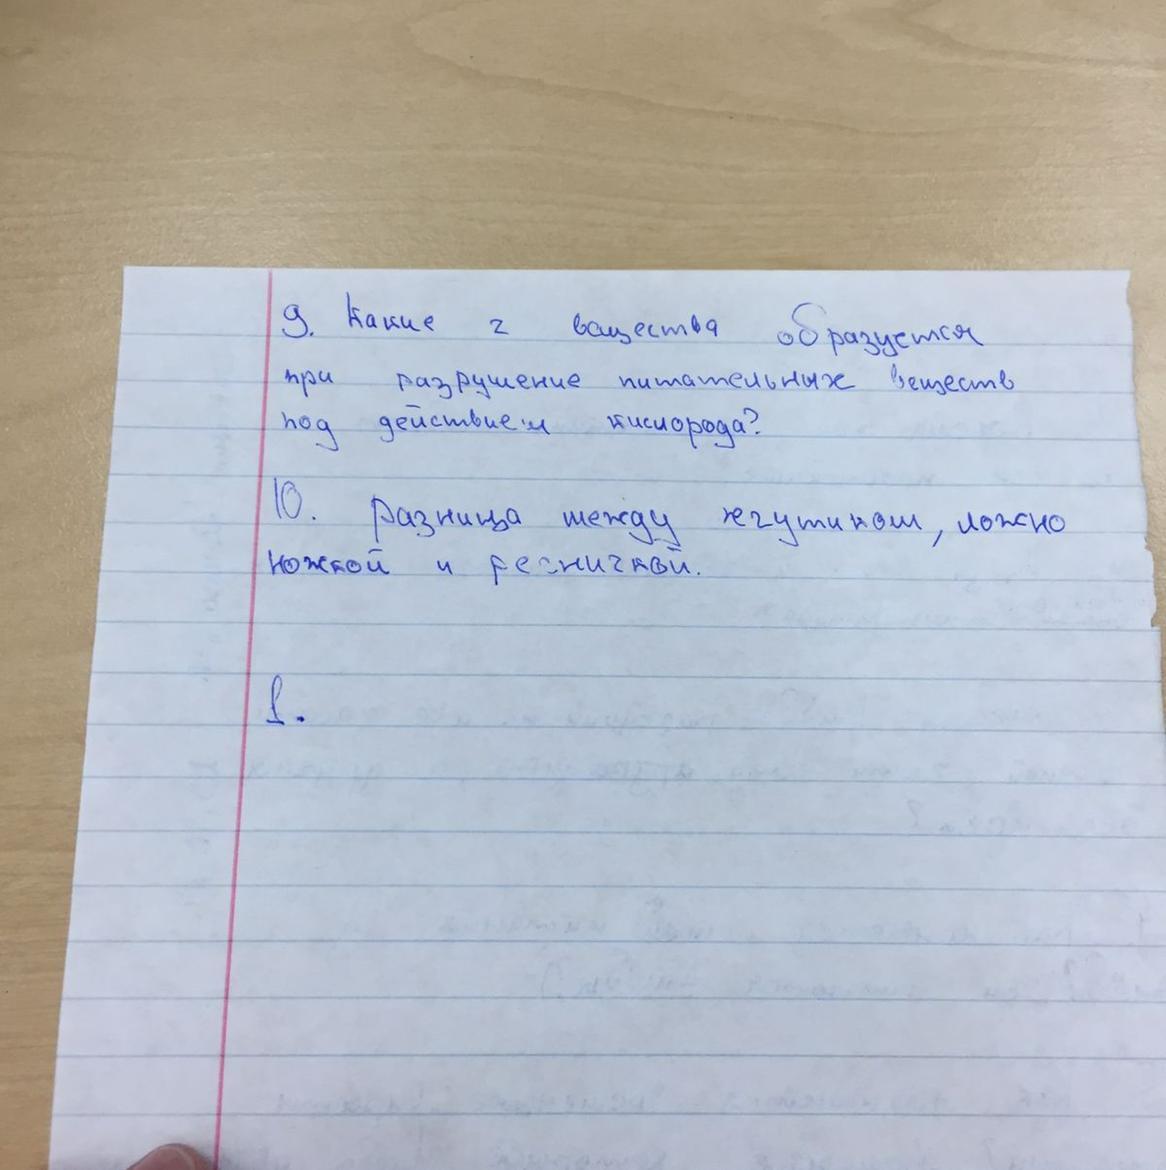 9. Какие 2 ващества образуется
при разрушение питательных веществ
под действием кислорода?
10. Разница между жгутиком, ложно
ножкой и ресничкой.
1.